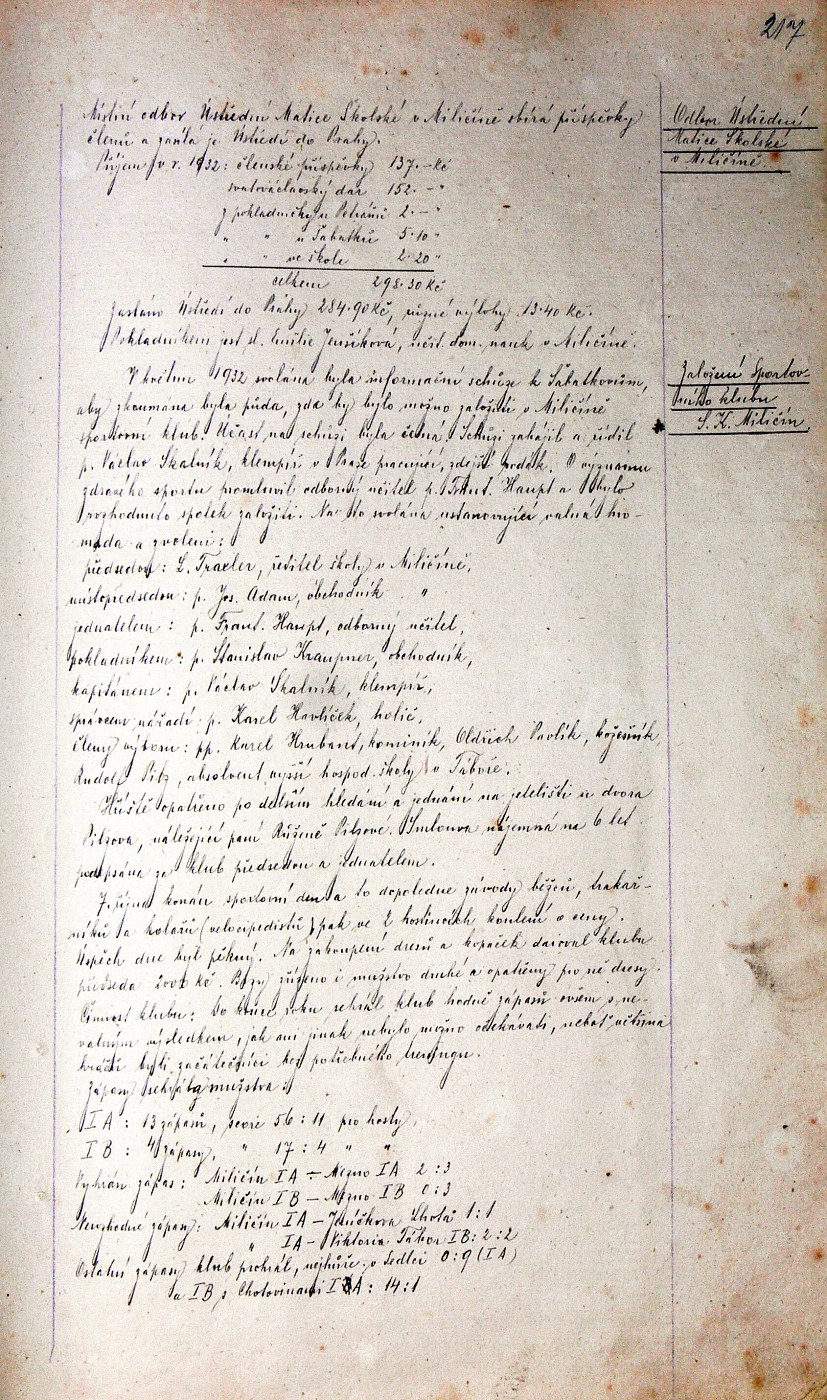 217
Místní odbor Ústřední Matice Školské v Miličíně sbírá příspěvky
členů a zasílá je Ústředí do Prahy.
Příjem v r. 1932: členské příspěvky 137.– Kč
svatováclavský dar 152.– "
z pokladničky u Petrášů 2.– "
" " u Šabatků 5.10 "
" " ve škole 2.20 "
celkem 298.30 Kč
Zasláno Ústředí do Prahy 284.90 Kč, různé výlohy 13.40 Kč.
Pokladníkem jest sl. Emilie Jenšíková, učit. dom. nauk v Miličíně.
Odbor Ústřední
Matice Školské
v Miličíně.
V květnu 1932 svolána byla informační schůze k Šabatkovům,
aby zkoumána byla půda, zda by bylo možno založiti v Miličíně
sportovní klub. Účast na schůzi byla četná. Schůzi zahájil a řídil
p. Václav Skalník, klempíř v Praze pracující, zdejší rodák. O významu
zdravého sportu promluvil odborný učitel p. Frant. Haupt a bylo
rozhodnuto spolek založiti. Na to svolána ustanovující valná hro-
mada a zvoleni:
předsedou: L. Traxler, ředitel školy v Miličíně,
místopředsedou: p. Jos. Adam, obchodník "
jednatelem: p. Frant. Haupt, odborný učitel,
pokladníkem: p. Stanislav Kraupner, obchodník,
kapitánem: p. Václav Skalník, klempíř,
správcem nářadí: p. Karel Havlíček, holič,
členy výboru: pp. Karel Hrubant, kominík, Oldřich Pavlík, kožešník
Rudolf Pilz, absolvent vyšší hospod. školy v Táboře.
Založení Sportov-
ního klubu
S. K. Miličín.
Hřiště opatřeno po delším hledání a jednání na jetelišti u dvora
Pilzova, náležející paní Růženě Pilzové. Smlouva nájemná na 6 let
podepsána za klub předsedou a jednatelem.
7. října konán sportovní den a to dopoledne závody běžců, trakař-
níků a kolařů (velocipedistů) pak ve 2 hostincích koulení o ceny.
Úspěch dne byl pěkný. Na zakoupení dresů a kopaček daroval klubu
předseda 2000 Kč. Brzy zřízeno i mužstvo druhé a opatřeny pro ně dresy.
Činnost klubu: Do konce roku sehrál klub hodně zápasů ovšem s ne-
valným výsledkem, jak ani jinak nebylo možno očekávati, neboť většina
hráčů byli začátečníci bez potřebného treningu.
Zápasy sehrály mužstva:
I A: 13 zápasů, score 56:11 pro hosty,
I B: 4 zápasy, " 17:4 " "
Vyhrán zápas: Miličín I A – Mezno I A 2:3
Miličín I B – Mezno I B 0:3
Nerozhodné zápasy: Miličín I A – Lhota 1:1
" I A – Viktoria Tábor I B: 2:2
Ostatní zápasy klub prohrál, nejhůře v Sedlci 0:9 (I A)
a I B s Chotovinami I A: 14:1